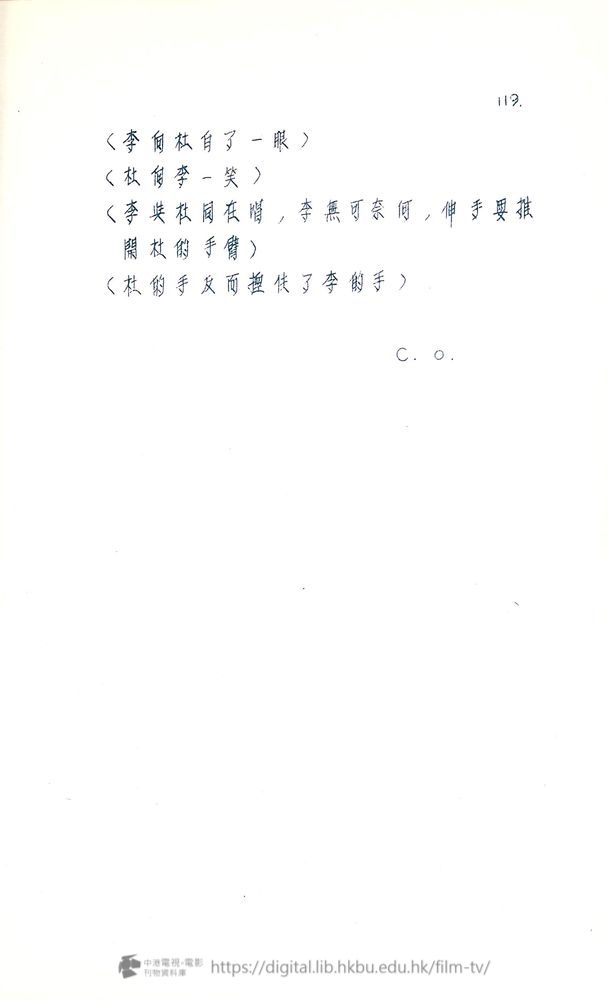 113.
（李向杜白了一眼）
（杜向李一笑）
（李與杜同在階，李無可奈何，伸手要推
開杜的手臂）
（杜的手反而握住了李的手）
C. O.
中港電視・電影
刊物資料庫
https://digital.lib.hkbu.edu.hk/film-tv/